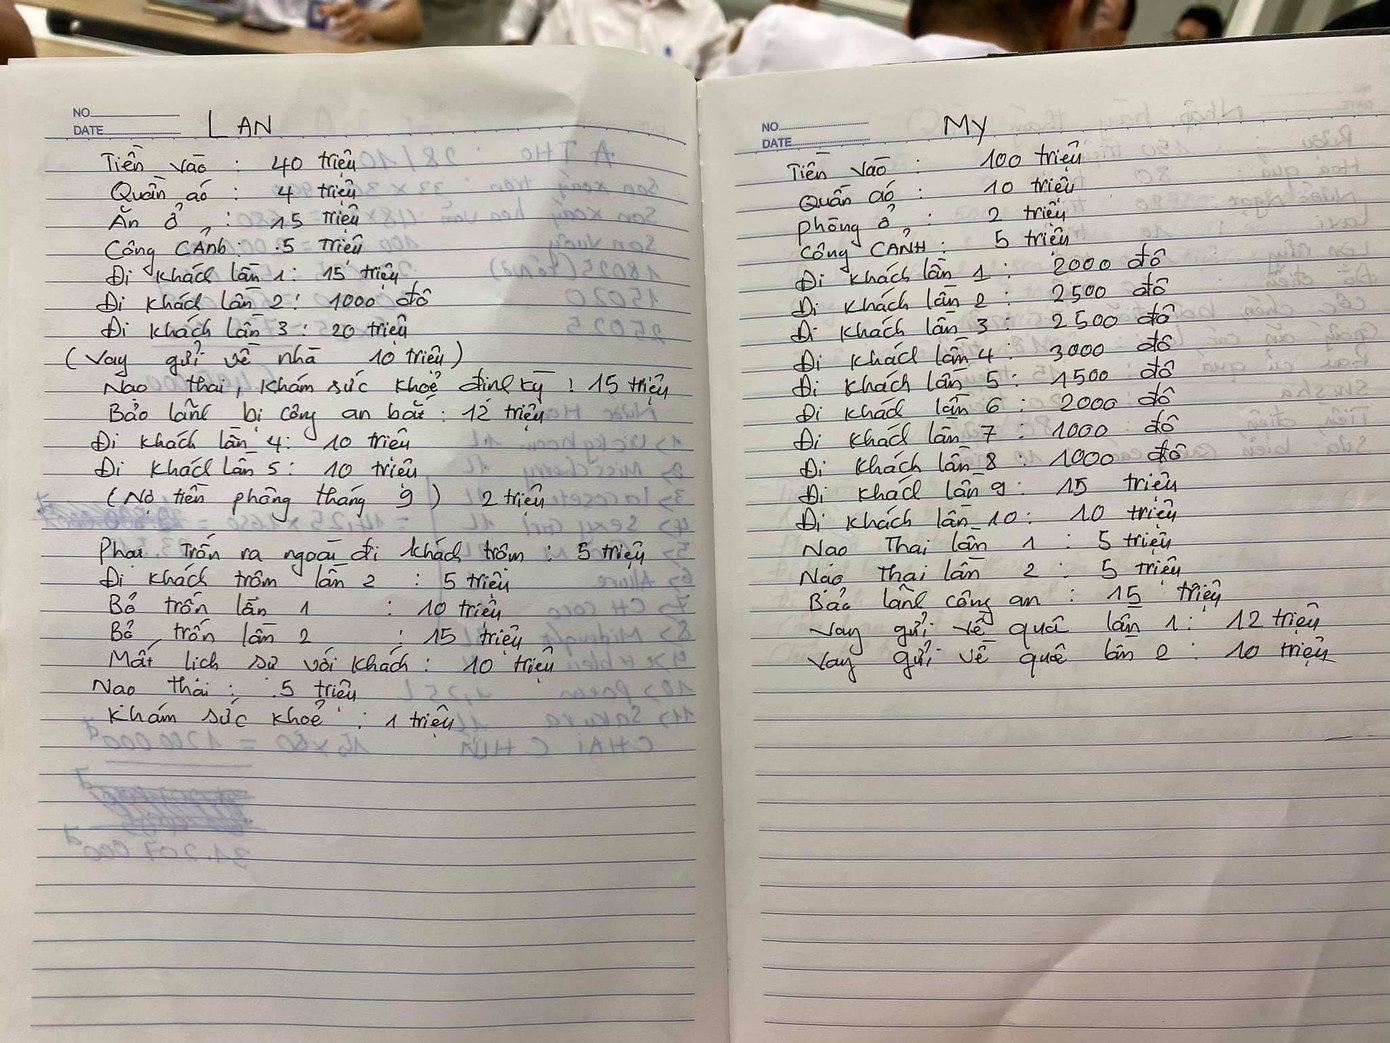 NO
DATE
LAN
Tiền vào : 40 triệu
Quần áo : 4 triệu
Ăn ở : 15 triệu
Công CẢNh : 5 triệu
Đi khách lần 1 : 15 triệu
Đi khách lần 2 : 1000 đô
Đi khách lần 3 : 20 triệu
(Vay gửi về nhà 10 triệu)
Nạo thai, khám sức khoẻ định kỳ : 15 triệu
Bảo lãnh bị công an bắt : 12 triệu
Đi khách lần 4 : 10 triệu
Đi khách lần 5 : 10 triệu
(Nợ tiền phòng tháng 9) 2 triệu
Phạt trốn ra ngoài đi khách trôm : 5 triệu
Đi khách trôm lần 2 : 5 triệu
Bỏ trốn lần 1 : 10 triệu
Bỏ trốn lần 2 : 15 triệu
Mất lịch sự với khách : 10 triệu
Nạo thai : 5 triệu
Khám sức khoẻ : 1 triệu
NO.
DATE
MY
Tiền vào : 100 triệu
Quần áo : 10 triệu
phòng ở : 2 triệu
Công CẢNH : 5 triệu
Đi khách lần 1 : 2000 đô
Đi khách lần 2 : 2500 đô
Đi khách lần 3 : 2500 đô
Đi khách lần 4 : 3000 đô
Đi khách lần 5 : 1500 đô
Đi khách lần 6 : 2000 đô
Đi khách lần 7 : 1000 đô
Đi khách lần 8 : 1000 đô
Đi khách lần 9 : 15 triệu
Đi khách lần 10 : 10 triệu
Nạo Thai lần 1 : 5 triệu
Nạo Thai lần 2 : 5 triệu
Bảo lãnh công an : 15 triệu
Vay gửi về quê lần 1 : 12 triệu
Vay gửi về quê lần 2 : 10 triệu